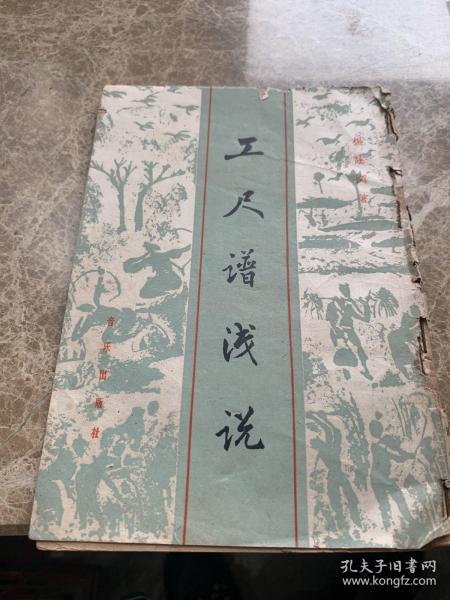 工尺谱浅说
音乐出版社
孔夫子旧书网
www.kongfz.com